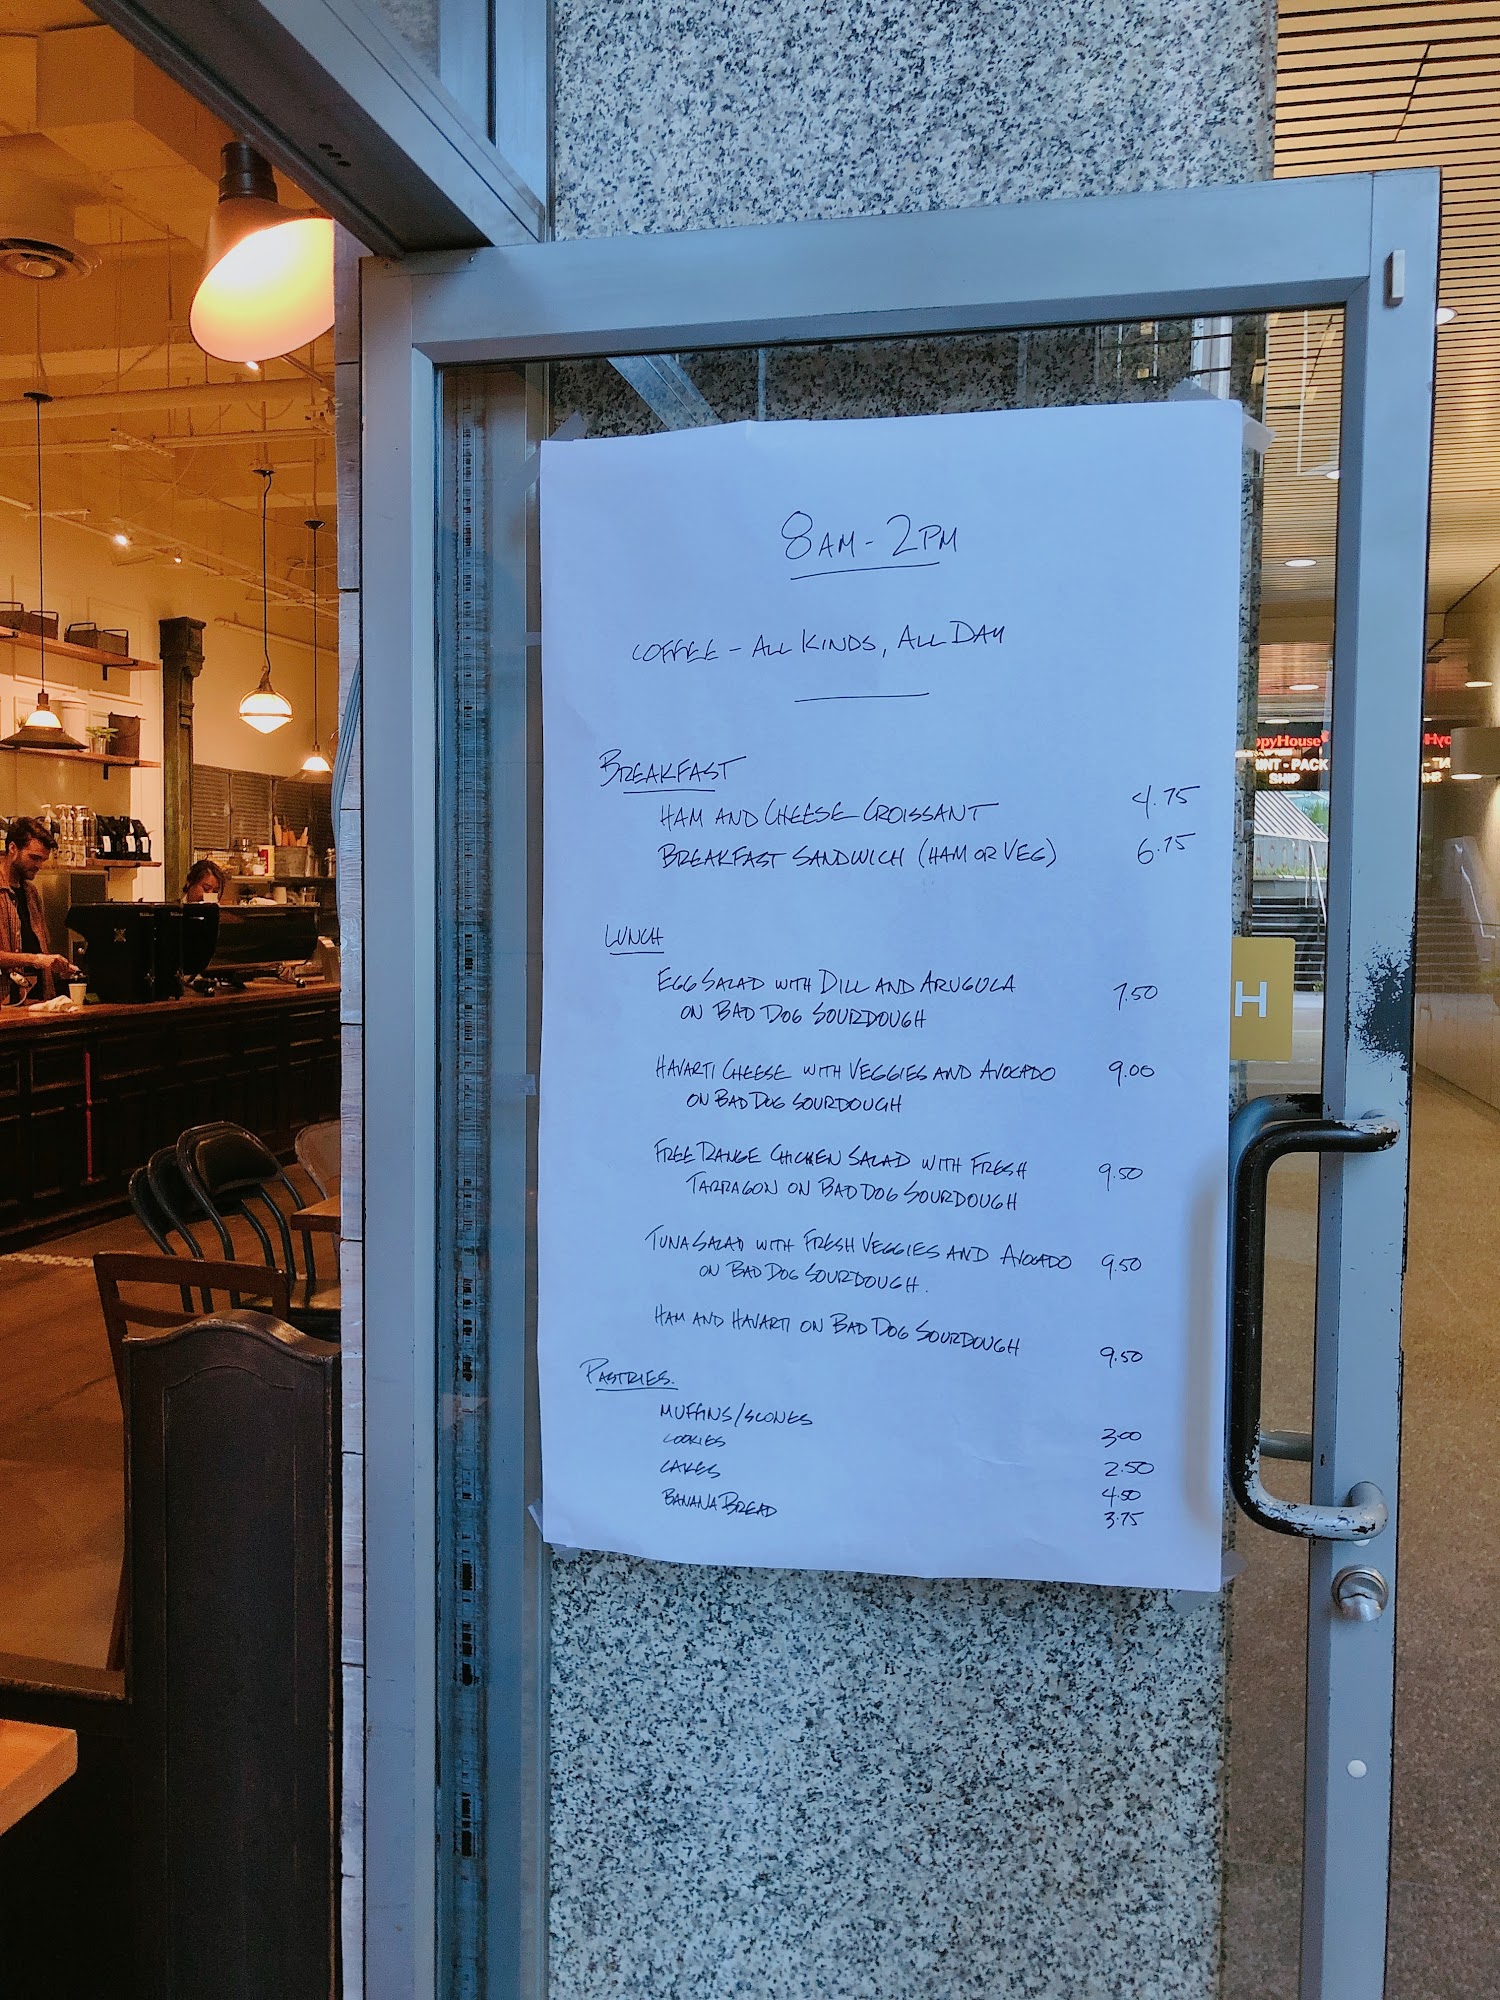 8AM - 2PM
COFFEE - ALL KINDS, ALL DAY
BREAKFAST
HAM AND CHEESE CROISSANT 4.75
BREAKFAST SANDWICH (HAM OR VEG) 6.75
LUNCH
EGG SALAD WITH DILL AND ARUGULA 7.50
ON BAD DOG SOURDOUGH
HAVARTI CHEESE WITH VEGGIES AND AVOCADO 9.00
ON BAD DOG SOURDOUGH
FREE RANGE CHICKEN SALAD WITH FRESH 9.50
TARRAGON ON BAD DOG SOURDOUGH
TUNA SALAD WITH FRESH VEGGIES AND AVOCADO 9.50
ON BAD DOG SOURDOUGH.
HAM AND HAVARTI ON BAD DOG SOURDOUGH 9.50
PASTRIES.
MUFFINS/SCONES 3.00
COOKIES 2.50
CAKES 4.50
BANANA BREAD 3.75
ppyHouse
INT - PACK
SHIP
H